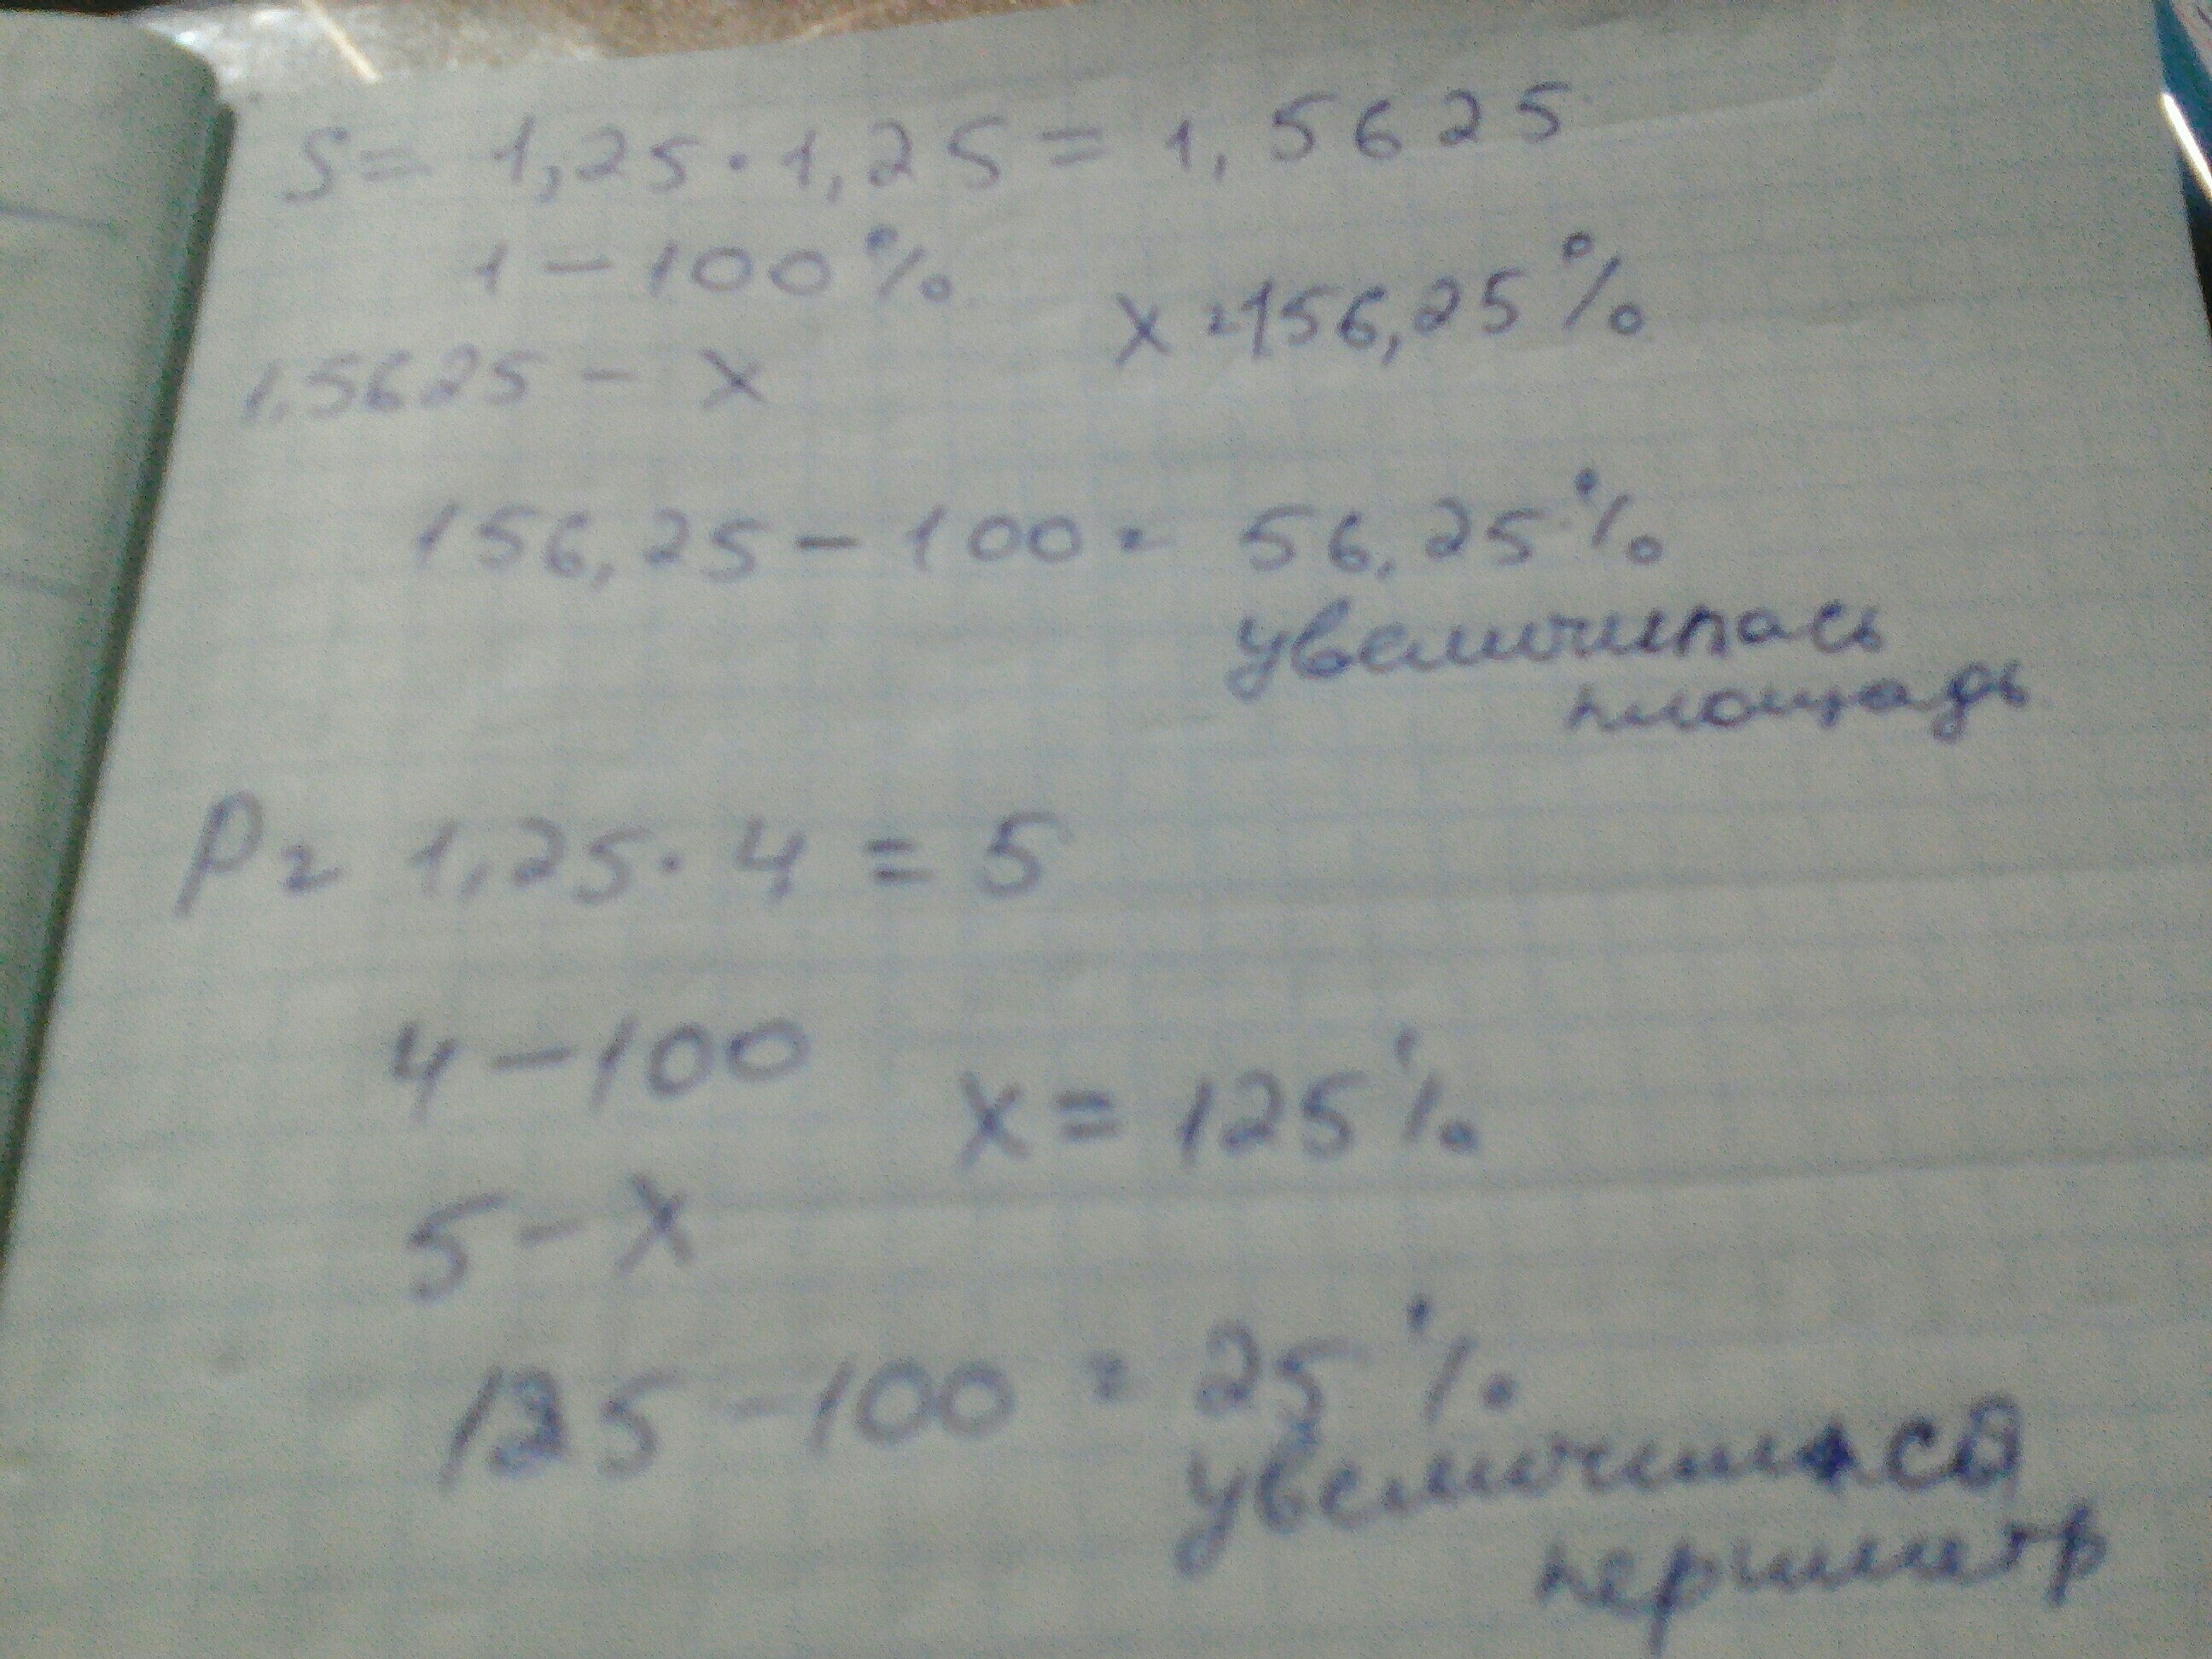 S = 1,25 · 1,25 = 1,5625
1 – 100%
x = 156,25%
1,5625 – x
156,25 – 100 = 56,25%
увеличилась
площадь
P = 1,25 · 4 = 5
4 – 100
x = 125%
5 – x
125 – 100 = 25%
увеличился
периметр